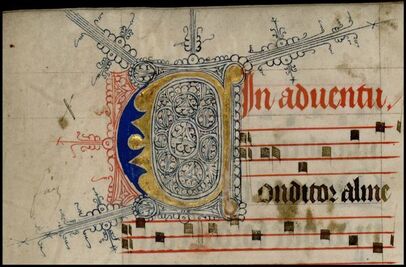 In aduentu.
Conditor alme